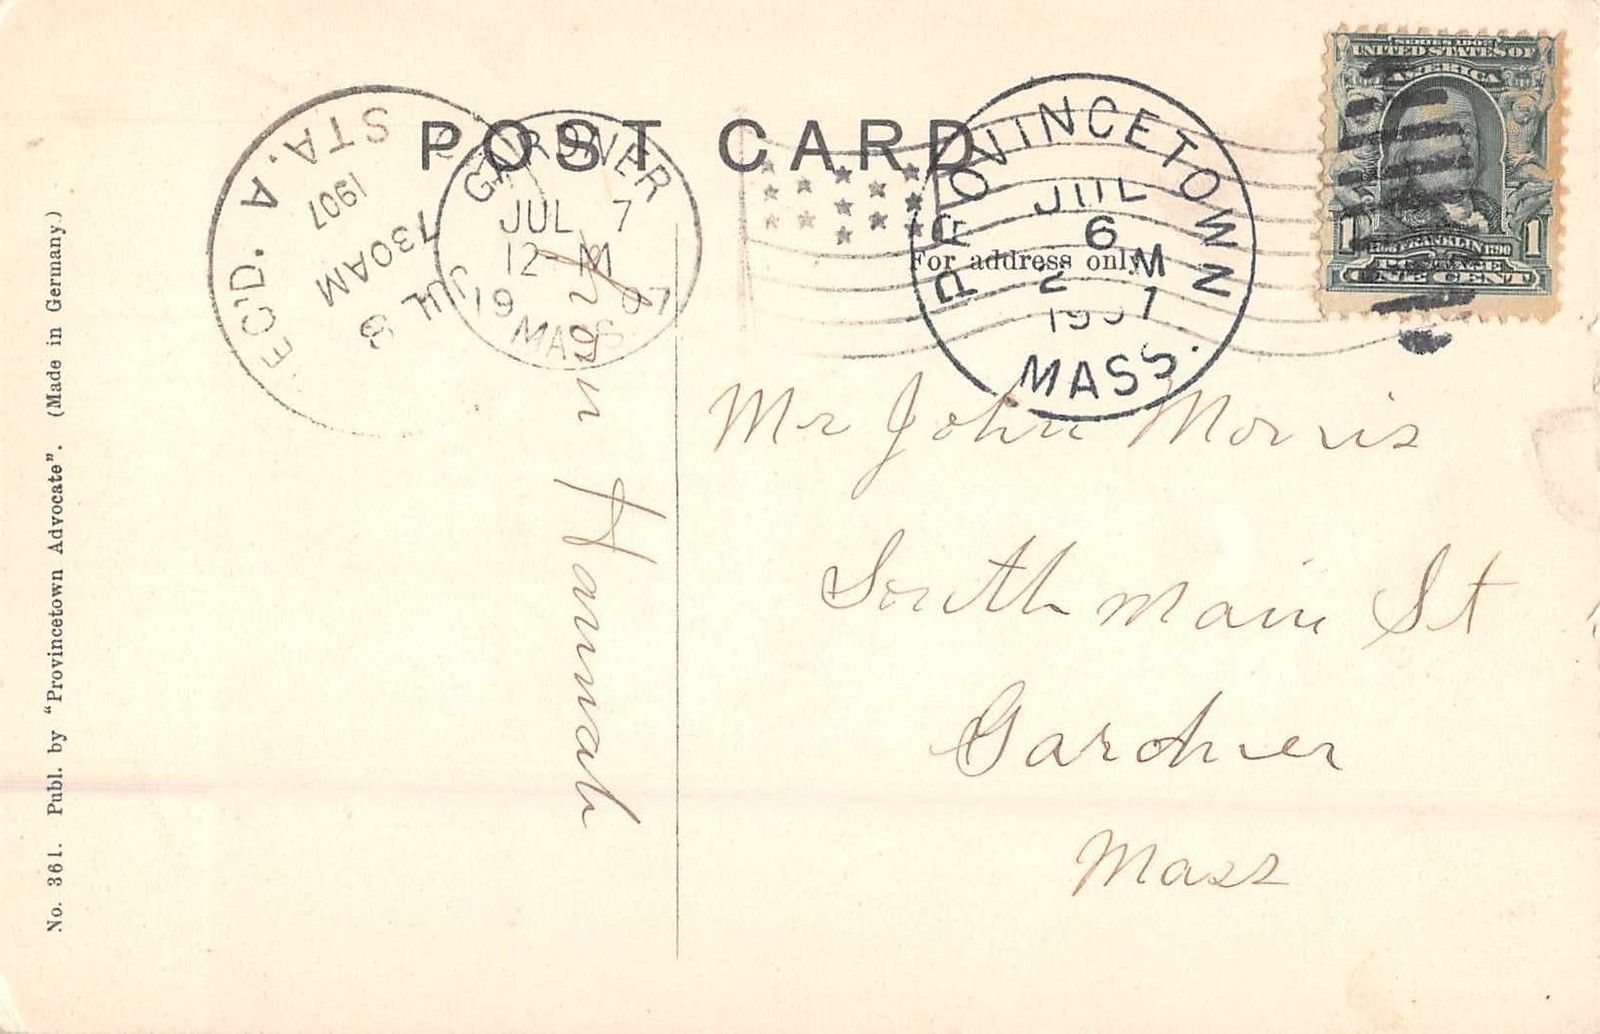 POST CARD
For address only
SERIES 1902
UNITED STATES OF
AMERICA
FRANKLIN 1790
1 1
ONE CENT
PROVINCETOWN
JUL
6
2 M
1907
MASS.
GARDNER
JUL 7
12-M
19 07
MASS
REC'D.
STA. A
JUL 8
730AM
1907
Mr John Morris
South Main St
Gardner
Mass
from Hannah
No. 361. Publ. by "Provincetown Advocate". (Made in Germany.)